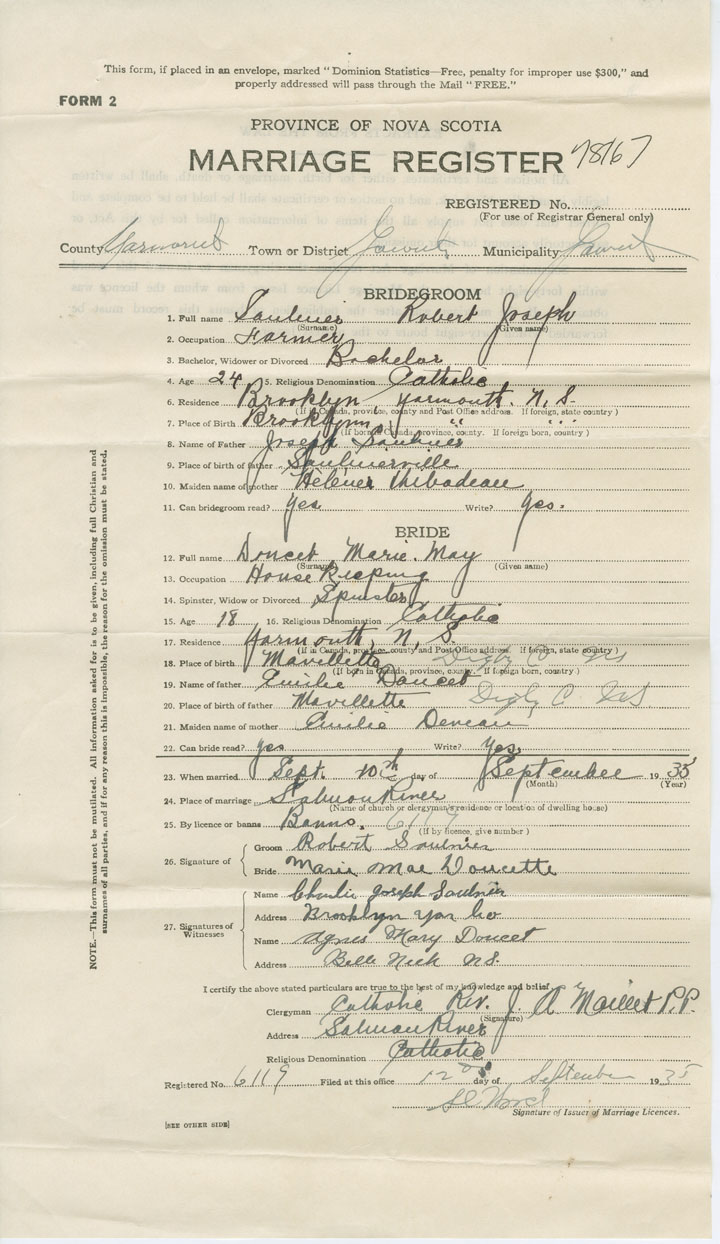 This form, if placed in an envelope, marked "Dominion Statistics—Free, penalty for improper use $300," and
properly addressed will pass through the Mail "FREE."
FORM 2
PROVINCE OF NOVA SCOTIA
MARRIAGE REGISTER
REGISTERED No.
(For use of Registrar General only)
County Yarmouth Town or District Municipality
BRIDEGROOM
1. Full name Saulnier Robert Joseph
(Surname) (Given name)
2. Occupation Farmer
3. Bachelor, Widower or Divorced Bachelor
4. Age 24 5. Religious Denomination Catholic
6. Residence Brooklyn Yarmouth. N. S.
(If in Canada, province, county and Post Office address. If foreign, state country)
7. Place of Birth Brooklynn, " " "
(If born in Canada, province, county. If foreign born, country)
8. Name of Father Joseph Saulnier
9. Place of birth of father Saulnierville
10. Maiden name of mother Hélener Thibadeau
11. Can bridegroom read? Yes Write? Yes.
BRIDE
12. Full name Doucet, Marie. May
(Surname) (Given name)
13. Occupation House Keeping
14. Spinster, Widow or Divorced Spinster
15. Age 18 16. Religious Denomination Catholic
17. Residence Yarmouth, N. S.
(If in Canada, province, county and Post Office address. If foreign, state country)
18. Place of birth Mavillette Digby C NS
(If born in Canada, province, county. If foreign born, country)
19. Name of father Emilie Doucet
20. Place of birth of father Mavillette Digby C NS
21. Maiden name of mother Emilie Deveau
22. Can bride read? yes Write? Yes
23. When married Sept. 10th day of September 1935
(Month) (Year)
24. Place of marriage Salmon River
(Name of church or clergyman's residence or location of dwelling house)
25. By licence or banns Banns. 6119
(If by licence, give number)
26. Signature of Groom Robert Saulnier
Bride Marie Mae Doucette
27. Signatures of Witnesses
Name Charlie Joseph Saulnier
Address Brooklyn Yar Co
Name Agnus Mary Doucet
Address Belle Neck NS.
I certify the above stated particulars are true to the best of my knowledge and belief.
Clergyman Catholic Rev. J. A Maillet P.P.
(Signature)
Address Salmon River
Religious Denomination Catholic
Registered No. 6119 Filed at this office 12 day of September 1935
Signature of Issuer of Marriage Licences.
[SEE OTHER SIDE]
NOTE.—This form must not be mutilated. All information asked for is to be given, including full Christian and
surnames of all parties, and if for any reason this is impossible, the reason for the omission must be stated.